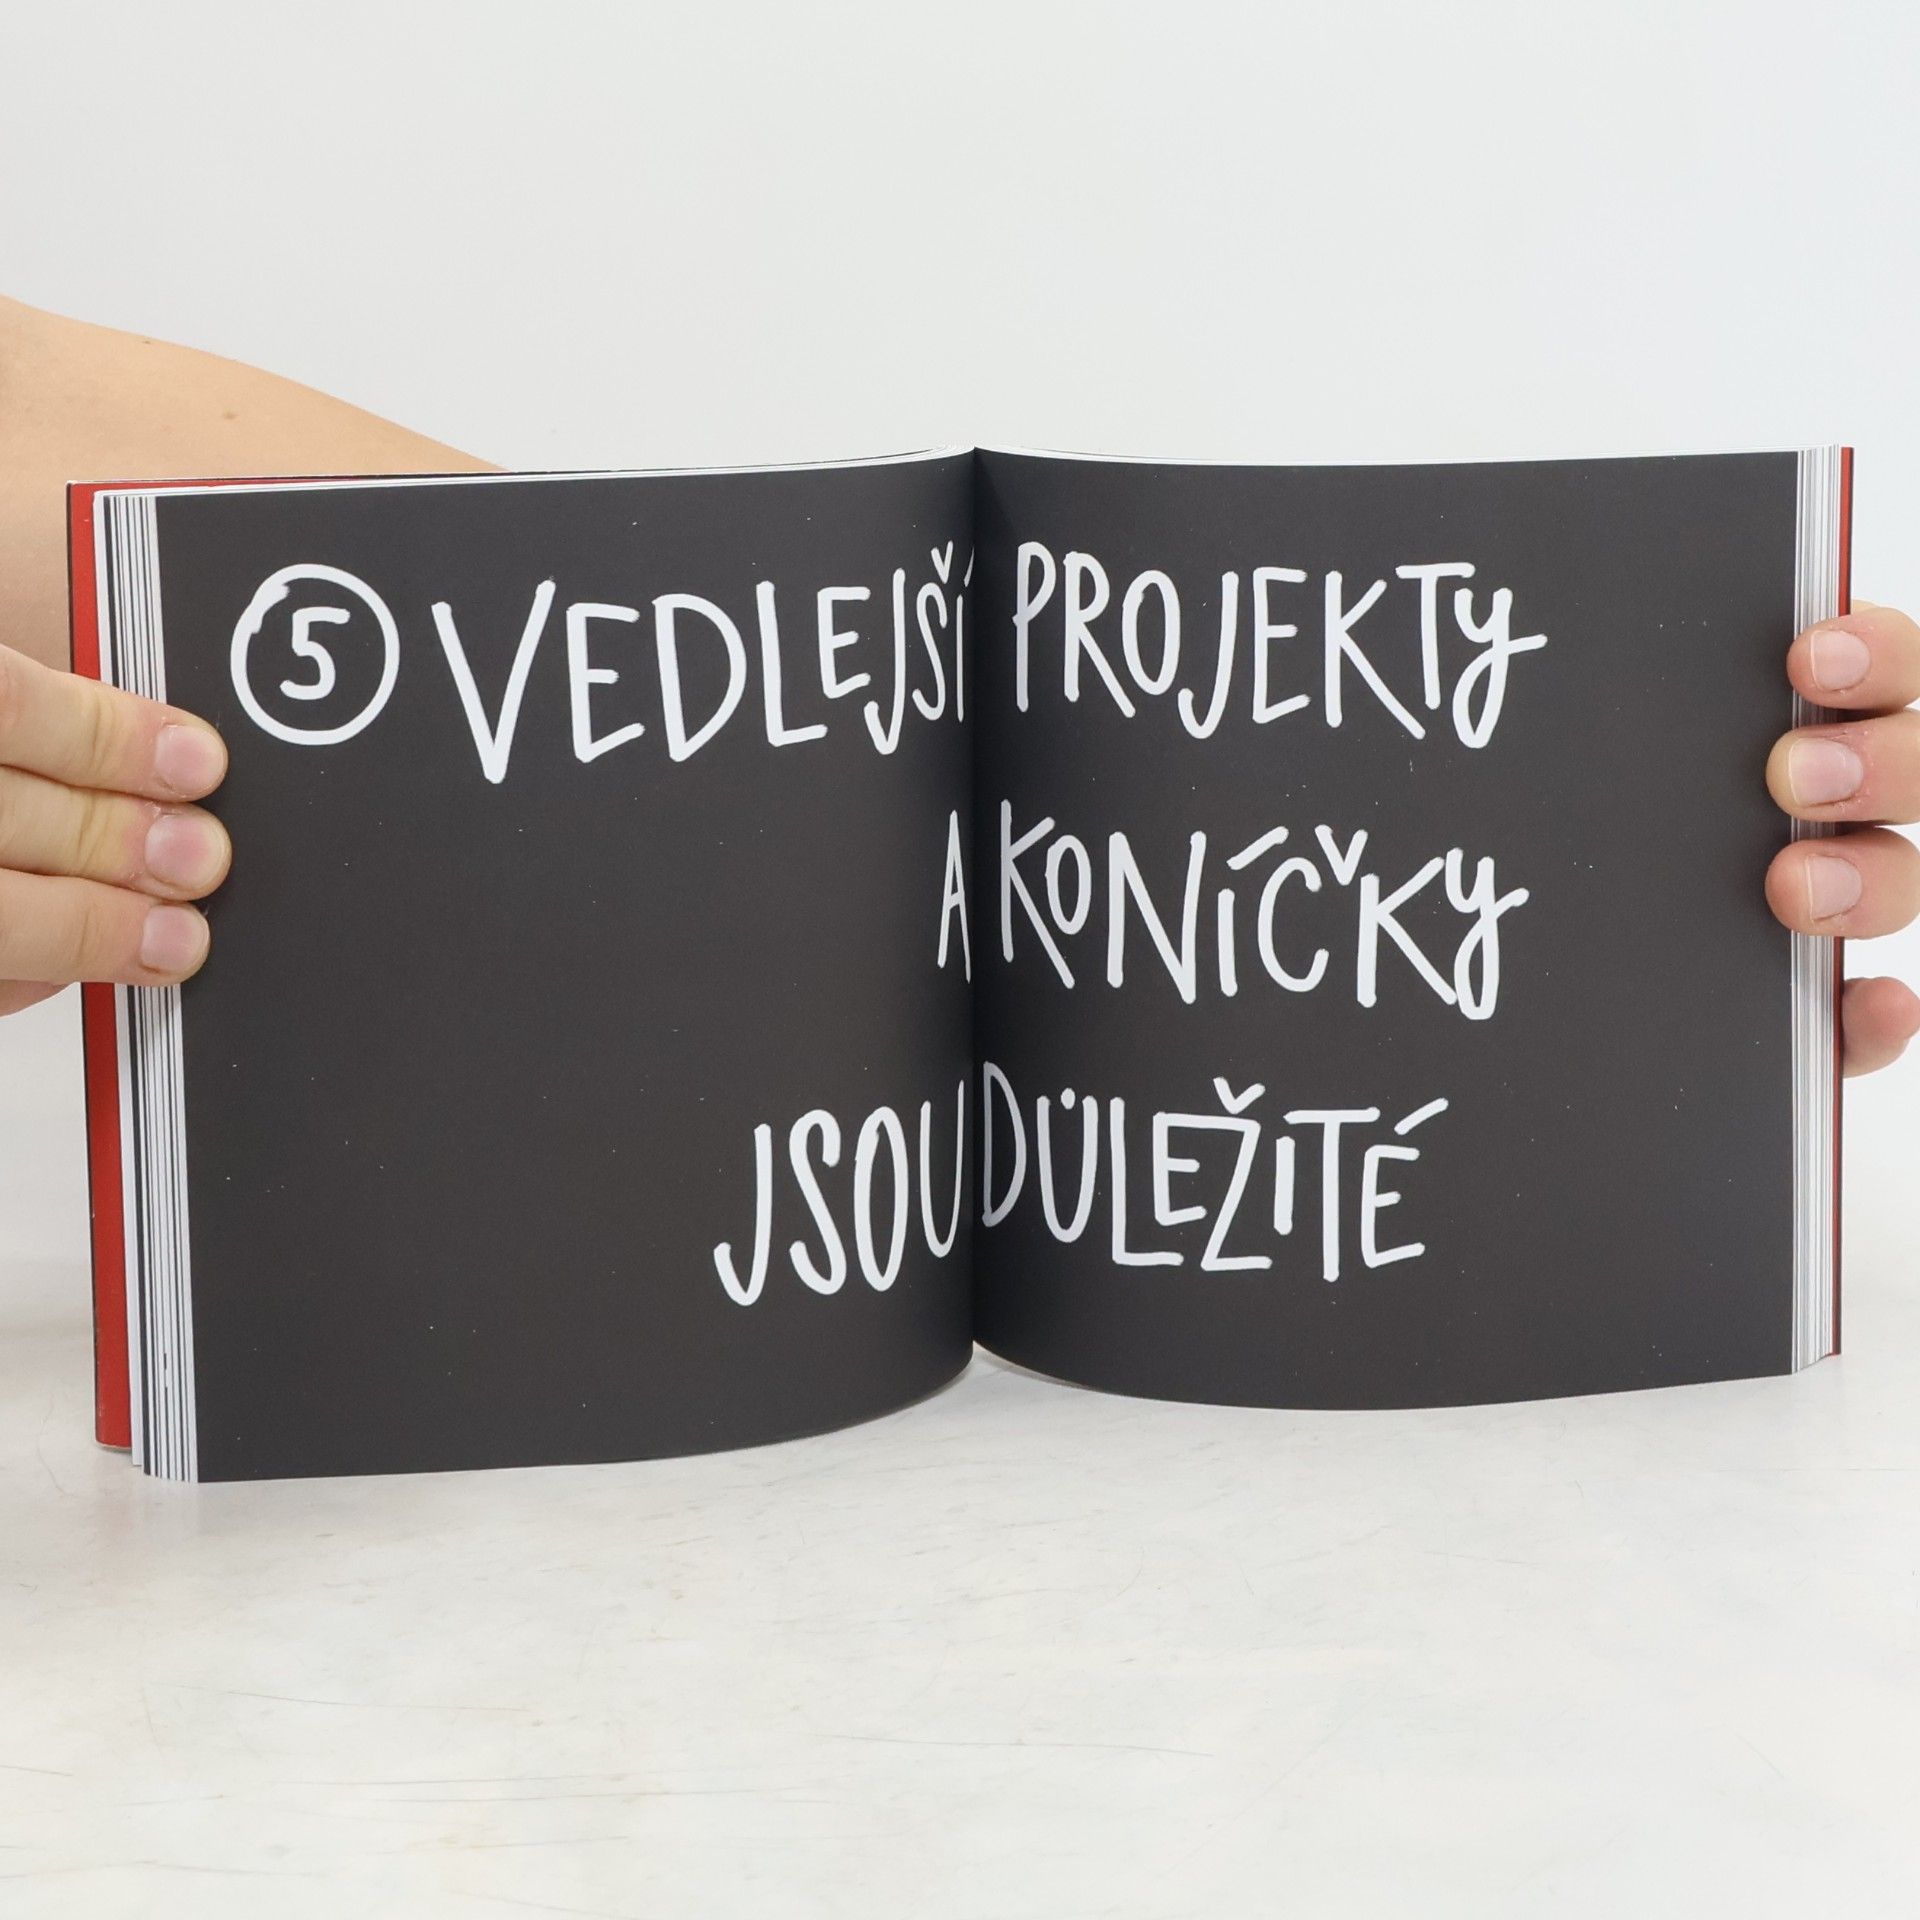 5 VEDLEJŠÍ PROJEKTY
A KONÍČKY
JSOU DŮLEŽITÉ